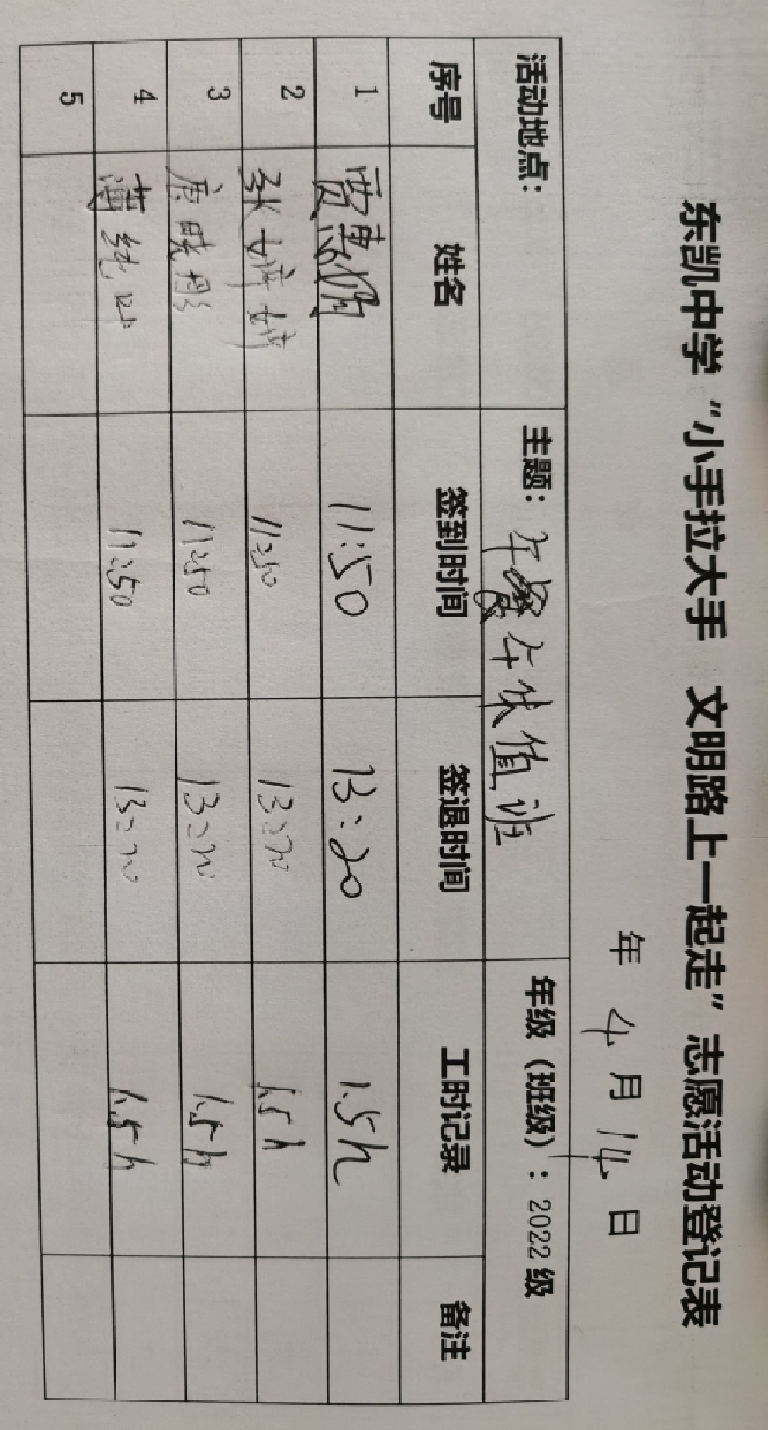 东凯中学“小手拉大手 文明路上一起走”志愿活动登记表
年 4 月 14 日
活动地点: 主题: 午餐午休值班 年级(班级): 2022级
序号 姓名 签到时间 签退时间 工时记录 备注
1 贾惠娟 11:50 13:20 1.5h
2 张婷婷 11:50 13:20 1.5h
3 康晓彤 11:50 13:20 1.5h
4 11:50 13:20 1.5h
5